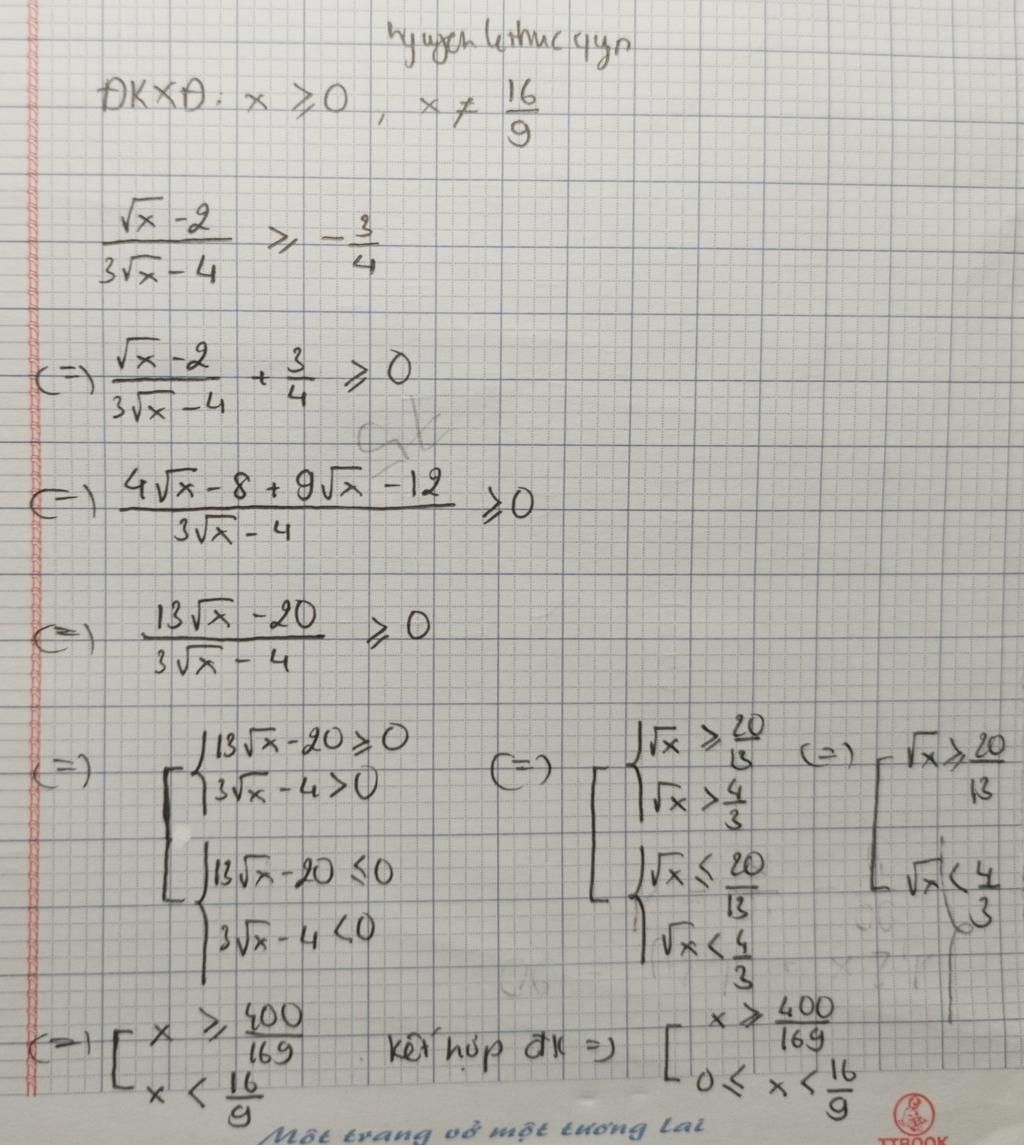 nguyen le thuc quyn
ĐKXĐ: x ≥ 0, x ≠ 16/9
(√x - 2)/(3√x - 4) ≥ -3/4
(=) (√x - 2)/(3√x - 4) + 3/4 ≥ 0
(=) (4√x - 8 + 9√x - 12)/(3√x - 4) ≥ 0
(=) (13√x - 20)/(3√x - 4) ≥ 0
(=) [ { 13√x - 20 ≥ 0 ; 3√x - 4 > 0 ; { 13√x - 20 ≤ 0 ; 3√x - 4 < 0 (=) [ { √x ≥ 20/13 ; √x > 4/3 ; { √x ≤ 20/13 ; √x < 4/3 (=) [ √x ≥ 20/13 ; √x < 4/3
(=) [ x ≥ 400/169 ; x < 16/9 kết hợp đk =) [ x ≥ 400/169 ; 0 ≤ x < 16/9
Một trang vở một tương lai
TTBOOK